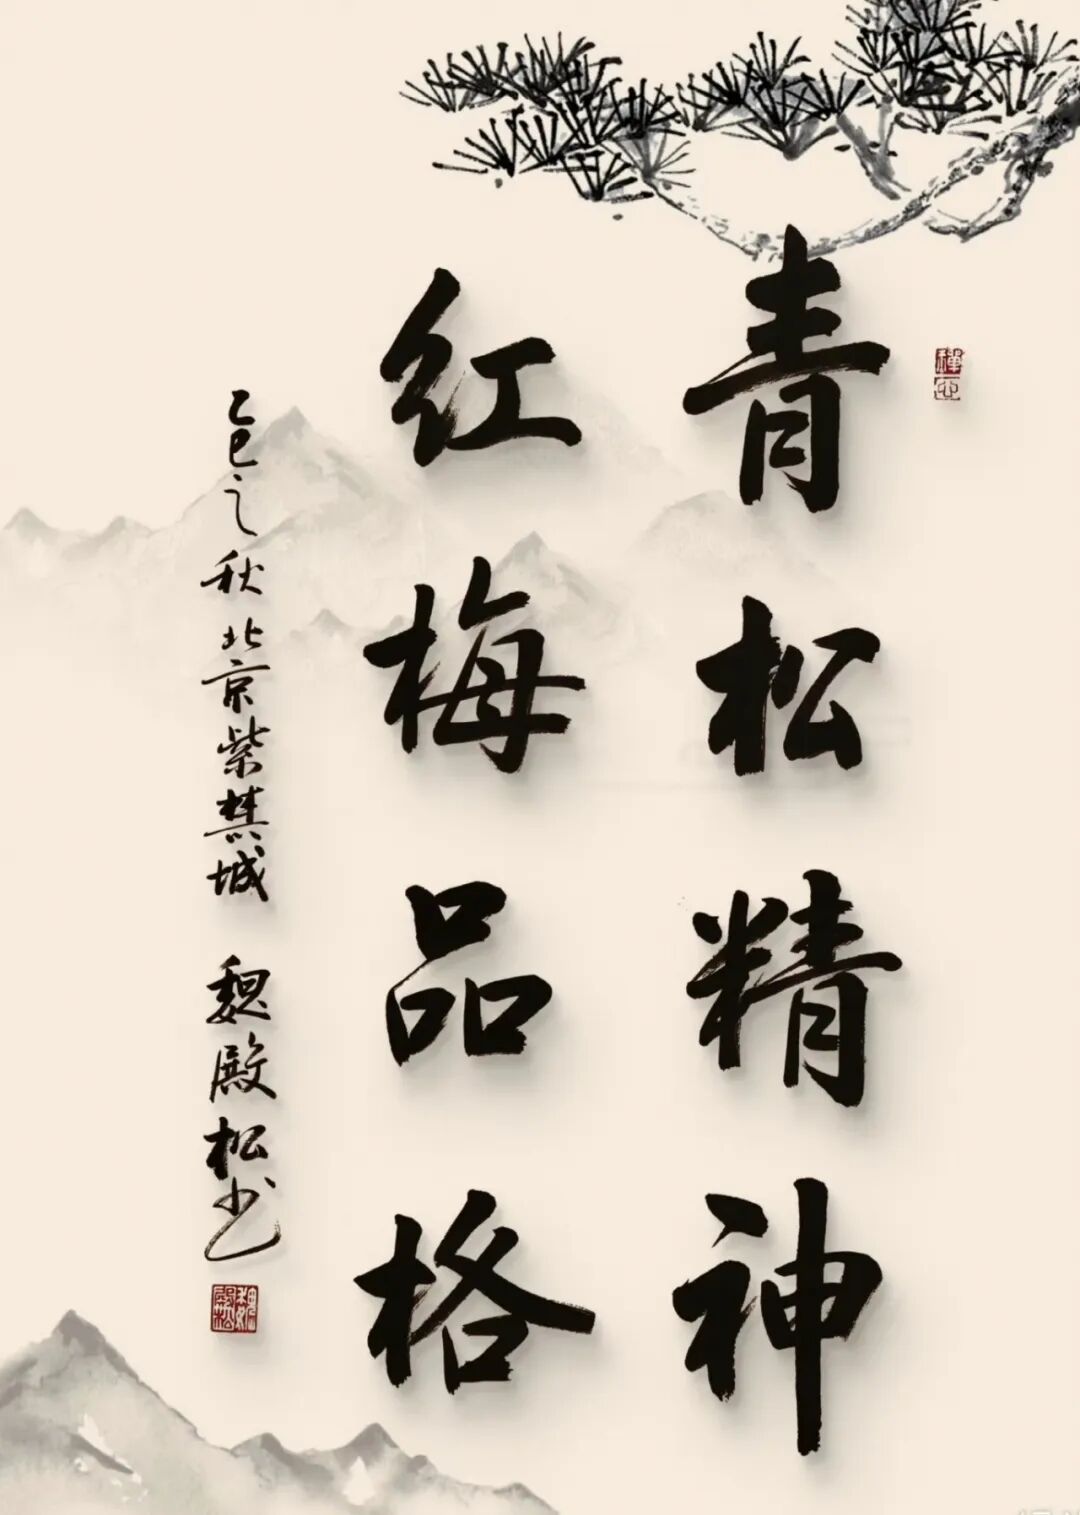 青松精神
红梅品格
乙巳之秋北京紫禁城 魏殿松书
禅心
魏殿松